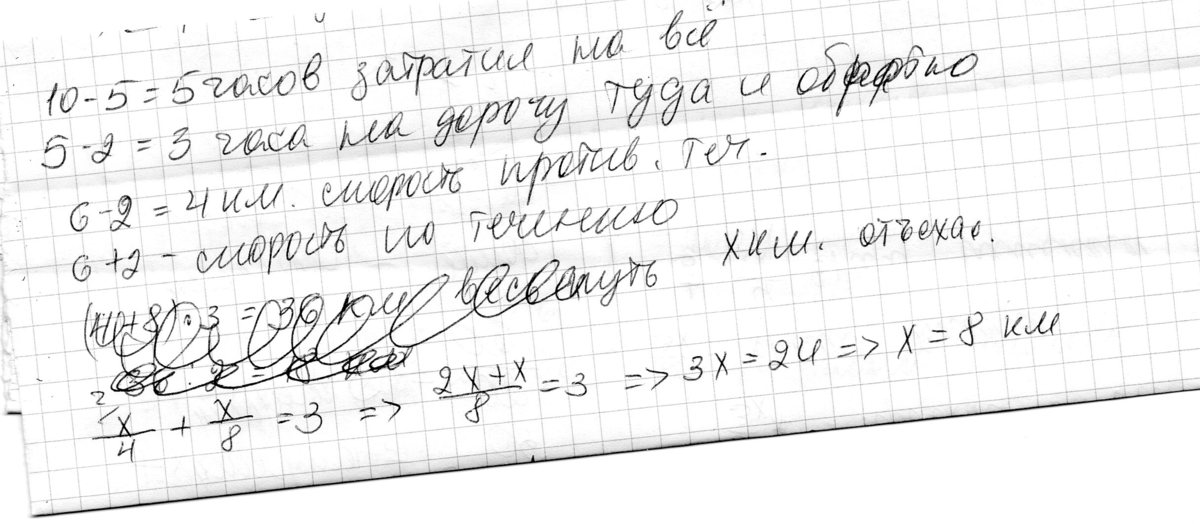 10-5=5 часов затратил на всё
5-2=3 часа на дорогу туда и обратно
6-2=4 км. скорость против. теч.
6+2 - скорость по течению
х км. отъехал.
+8)·3=36 км весь путь
x/4 + x/8 = 3 => 2x+x/8 = 3 => 3x=24 => x=8 км